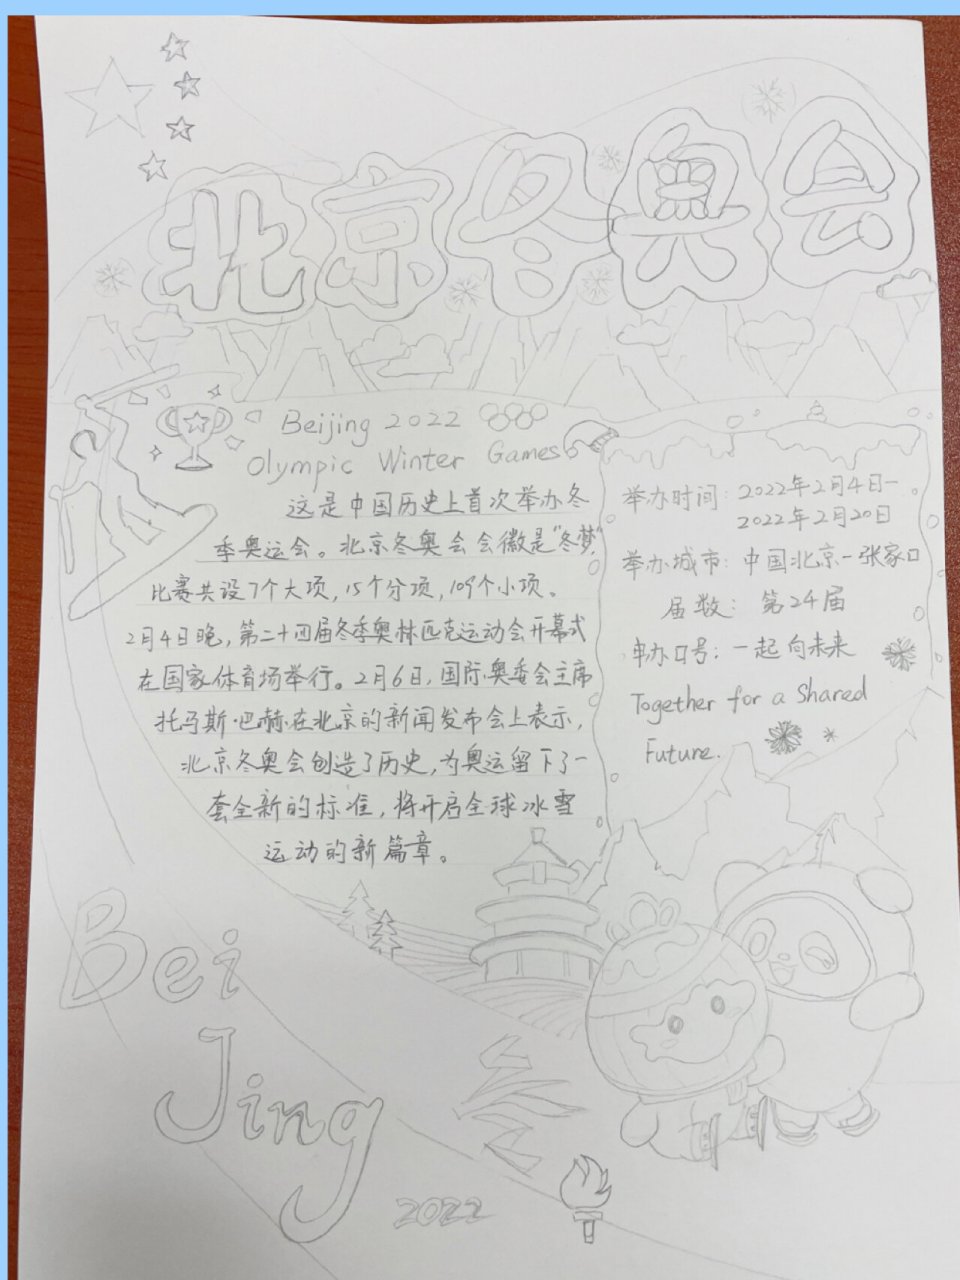 北京冬奥会
Beijing 2022
Olympic Winter Games
这是中国历史上首次举办冬
季奥运会。北京冬奥会会徽是“冬梦”
比赛共设7个大项,15个分项,109个小项。
2月4日晚,第二十四届冬季奥林匹克运动会开幕式
在国家体育场举行。2月6日,国际奥委会主席
托马斯·巴赫·在北京的新闻发布会上表示,
北京冬奥会创造了历史,为奥运留下了一
套全新的标准,将开启全球冰雪
运动的新篇章。
举办时间:2022年2月4日—
2022年2月20日
举办城市:中国北京—张家口
届数:第24届
申办口号:一起向未来
Together for a Shared
Future.
Bei
Jing
2022